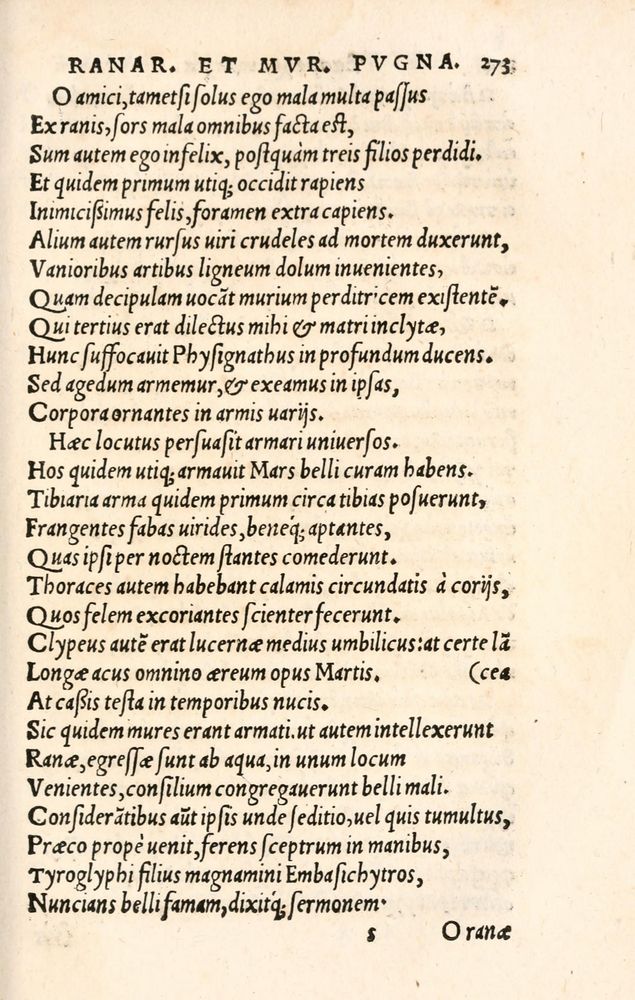 RANAR. ET MVR. PVGNA. 273
O amici, tametsi solus ego mala multa passus
Ex ranis, sors mala omnibus facta est,
Sum autem ego infelix, postquàm treis filios perdidi.
Et quidem primum utiq; occidit rapiens
Inimicißimus felis, foramen extra capiens.
Alium autem rursus uiri crudeles ad mortem duxerunt,
Vanioribus artibus ligneum dolum inuenientes,
Quam decipulam uocāt murium perditricem existentē.
Qui tertius erat dilectus mihi & matri inclytæ,
Hunc suffocauit Physignathus in profundum ducens.
Sed agedum armemur, & exeamus in ipsas,
Corpora ornantes in armis uarijs.
Hæc locutus persuasit armari uniuersos.
Hos quidem utiq; armauit Mars belli curam habens.
Tibiaria arma quidem primum circa tibias posuerunt,
Frangentes fabas uirides, beneq́; aptantes,
Quas ipsi per noctem stantes comederunt.
Thoraces autem habebant calamis circundatis à corijs,
Quos felem excoriantes scienter fecerunt.
Clypeus autē erat lucernæ medius umbilicus: at certe lā
Longæ acus omnino æreum opus Martis. (cea
At caßis testa in temporibus nucis.
Sic quidem mures erant armati. ut autem intellexerunt
Ranæ, egressæ sunt ab aqua, in unum locum
Venientes, consilium congregauerunt belli mali.
Considerātibus aūt ipsis unde seditio, uel quis tumultus,
Præco propè uenit, ferens sceptrum in manibus,
Tyroglyphi filius magnamini Embasichytros,
Nuncians belli famam, dixitq́; sermonem.
s O ranæ